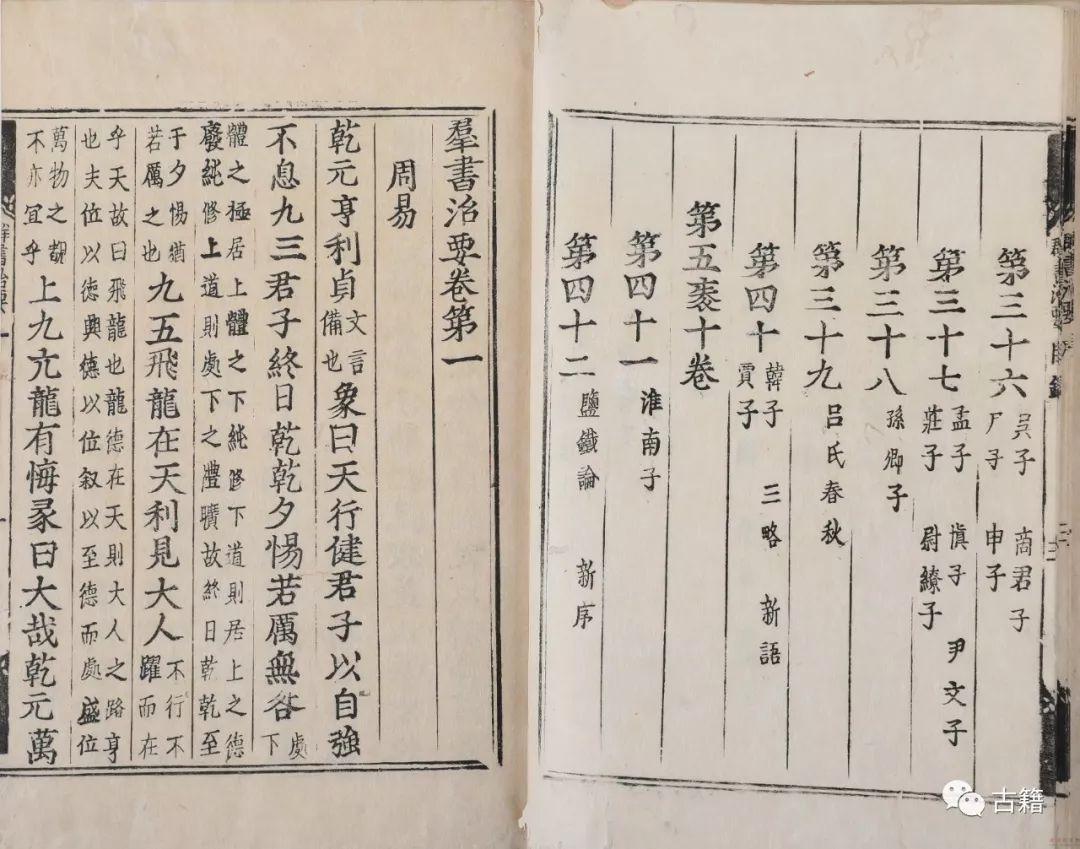 第三十六 吳子 商君子
尸子 申子
第三十七 孟子 慎子 尹文子
莊子 尉繚子
第三十八 孫卿子
第三十九 呂氏春秋
第四十 韓子 三略 新語
賈子
第五袠十卷
第四十一 淮南子
第四十二 鹽鐵論 新序
羣書治要卷第一
周易
乾元亨利貞文言備也象曰天行健君子以自強
不息九三君子終日乾乾夕惕若厲無咎處下
體之極居上體之下純修下道則居上之德
廢純修上道則處下之禮曠故終日乾乾至
于夕惕猶若厲之也九五飛龍在天利見大人不行不躍而在
乎天故曰飛龍也龍德在天則大人之路亨
也夫位以德興德以位叙以至德而處盛位
萬物之覩不亦宜乎上九亢龍有悔彖曰大哉乾元萬
古籍